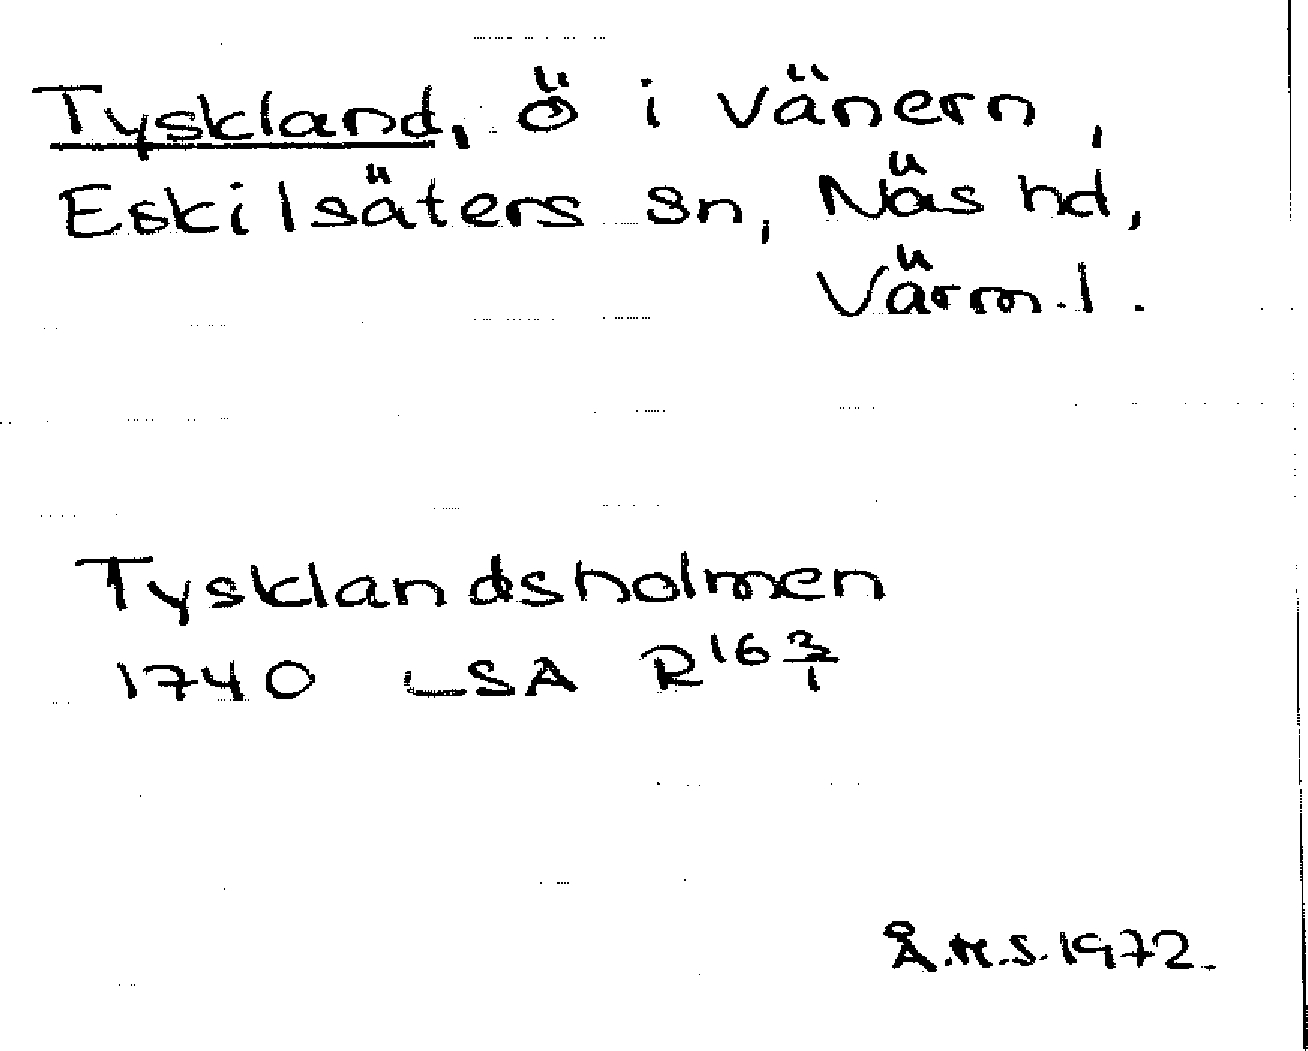 Tyskland, ö i Vänern,
Eskilsäters sn, Näs hd,
Värml.
Tysklandsholmen
1740 LSA R16 3/1
Å.H.S. 1972.